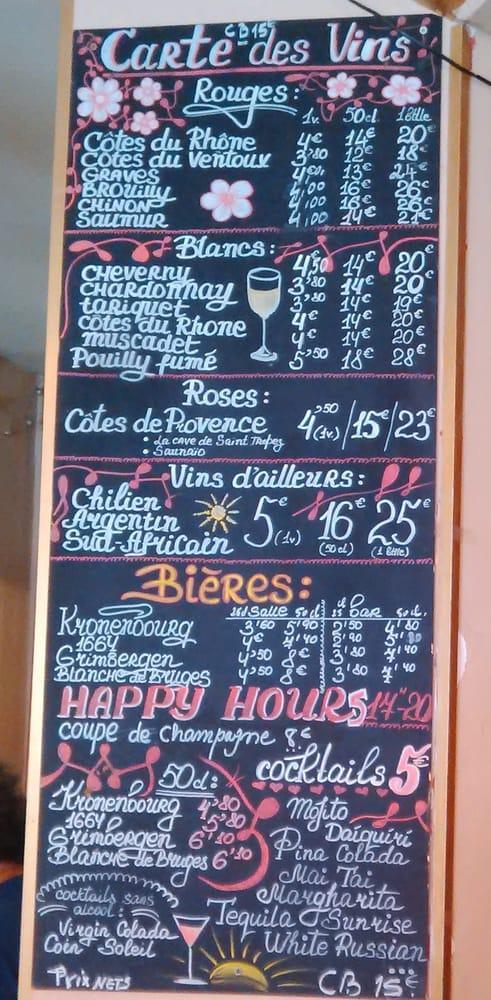 CB 15€
Carte des Vins
Rouges:
1v. 50cl 1 btlle
Côtes du Rhône 4€ 14€ 20€
Côtes du Ventoux 3,80 12€ 18€
GRAVES 13€ 24€
BROUILLY 4,00 16€ 26€
CHINON 4,00 16€ 26€
SAUMUR 4,00 14€ 21€
Blancs:
CHEVERNY 4,50 14€ 20€
CHARDONNAY 3,80 14€ 20€
tariquet 3,80 14€ 19€
côtes du Rhone 4€ 14€ 20€
muscadet 4€ 14€ 20€
Pouilly fumé 5,50 18€ 28€
Roses:
Côtes de Provence 4,50 (1v.) / 15€ / 23€
: La cave de Saint Tropez
: Saunaio
Vins d'ailleurs:
Chilien
Argentin 5€ (1v) 16€ (50cl) 25€ (1 btlle)
Sud-Africain
Bières:
25cl Salle 50cl 25cl bar 50cl
Kronenbourg 3,60 5,90 2,50 4,80
1664 4€
Grimbergen 4,50 8€
Blanche de Bruges 4,50 8€
HAPPY HOURS 17H-20
coupe de champagne 8€
cocktails 5€
50cl:
Kronenbourg 4,80
1664 5,80
Grimbergen 6,10
Blanche de Bruges 6,10
Mojito
Daïquiri
Pina Colada
Mai Tai
Margharita
Tequila Sunrise
White Russian
cocktails sans
alcool:
Virgin Colada
Coin Soleil
Prix NETS
CB 15€